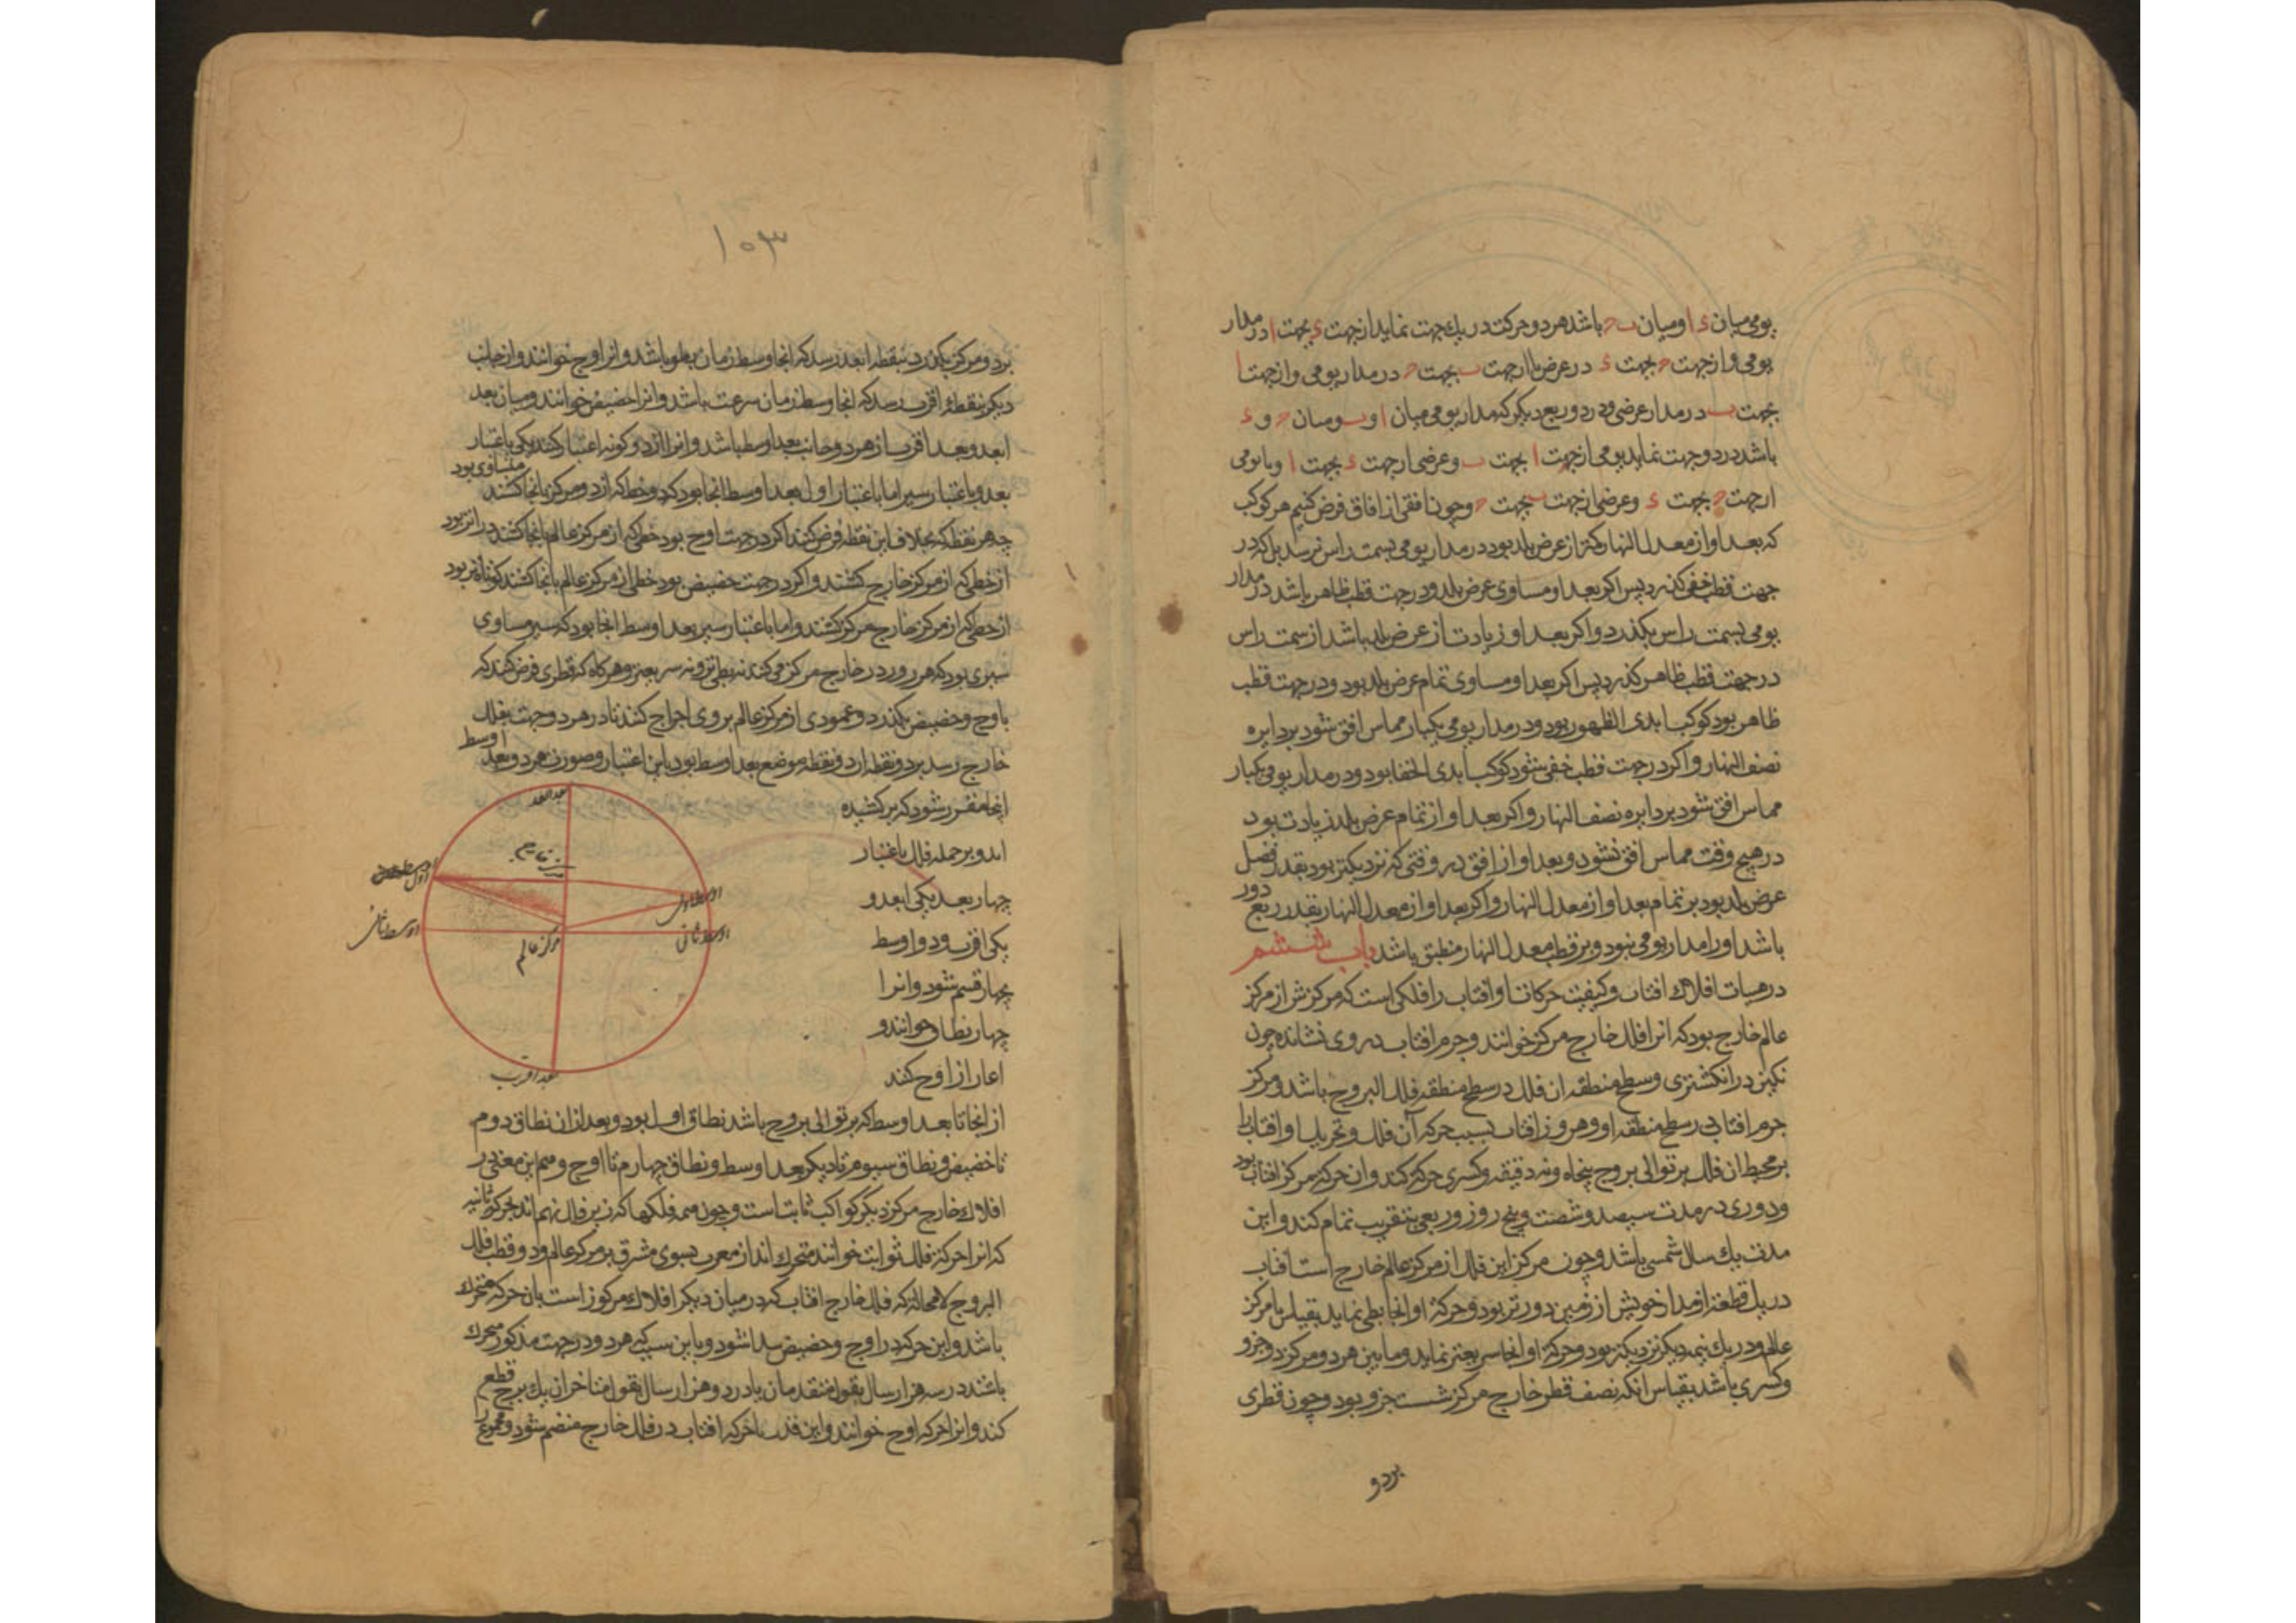 یومی میان ء ا و میان ب ح باشد هر دو حرکت در یک جهت نماید از جهت ء بجهت ا در مدار
یومی و از جهت ح بجهت ء در عرض یا از جهت ب بجهت ح در مدار یومی و از جهت ا
بجهت ب در مدار عرضی و در دو ربع دیگر که مدار یومی میان ا و ب و میان ح و ء
باشد در دو جهت نماید یومی از جهت ا بجهت ب و عرضی از جهت ء بجهت ا و یا یومی
از جهت ح بجهت ء و عرضی از جهت ب بجهت ح و چون افقی از افاق فرض کنیم هر کوکب
که بعد او از معدل النهار کمتر از عرض بلد بود در مدار یومی بسمت راس نرسد بل که در
جهت قطب خفی کذرد پس اکر بعد او مساوی عرض بلد و در جهت قطب ظاهر باشد در مدار
یومی بسمت راس بکذرد و اکر بعد او زیادت از عرض بلد باشد از سمت راس
در جهت قطب ظاهر کذرد پس اکر بعد او مساوی تمام عرض بلد بود و در جهت قطب
ظاهر بود کوکب ابدی الظهور بود و در مدار یومی یکبار مماس افق شود بر دایره
نصف النهار و اکر در جهت قطب خفی شود کوکب ابدی الخفا بود و در مدار یومی یکبار
مماس افق شود بر دایره نصف النهار و اکر بعد او از تمام عرض بلد زیادت بود
در هیچ وقت مماس افق نشود و بعد او از افق در وقتی که نزدیکتر بود بقدر فضل
عرض بلد بود بر تمام بعد او از معدل النهار و اکر بعد او از معدل النهار بقدر ربع دور
باشد او را مدار یومی نبود و بر قطب معدل النهار منطبق باشد باب ششم
در هیات افلاک افتاب و کیفیت حرکات او افتاب را فلکی است که مرکزش از مرکز
عالم خارج بود که انرا فلک خارج مرکز خوانند و جرم افتاب در وی نشانده چون
نکین در انکشتری و سطح منطقه ان فلک در سطح منطقه فلک البروج باشد و مرکز
جرم افتاب در سطح منطقه او و هر روز افتاب بسبب حرکه آن فلک و تحریک او افتاب را
بر محیط ان فلک بر توالی بروج پنجاه و نه دقیقه و کسری حرکه کند و ان حرکه مرکز افتاب بود
و دوری در مدت سیصد و شصت و پنج روز و ربعی بتقریب تمام کند و این
مدت یک سال شمسی باشد و چون مرکز این فلک از مرکز عالم خارج است افتاب
در یک قطعه از مدار خویش از زمین دورتر بود و حرکه او انجا بطی نماید بقیاس با مرکز
عالم و در یک نیمه دیکر نزدیکتر بود و حرکه او انجا سریعتر نماید و ما بین هر دو مرکز دو جزو
و کسری باشد بقیاس انکه نصف قطر خارج مرکز شست جزو بود و چون قطری
بر دو
۱۰۳
بر دو مرکز بکذرد بنقطه ابعد رسد که انجا وسط زمان بطو باشد و انرا اوج خوانند و از جانب
دیکر بنقطه اقرب رسد که انجا وسط زمان سرعت باشد و انرا حضیض خوانند و میان بعد
ابعد و بعد اقرب از هر دو جانب بعد اوسط باشد و انرا از دو کونه اعتبار کنند یکی باعتبار
بعد و باعتبار سیر اما باعتبار اول بعد اوسط انجا بود که دو خط که از دو مرکز بانجا کشند متساوی بود
چه هر نقطه که بخلاف این نقطه فرض کنند اکر در جهت اوج بود خطی که از مرکز عالم بانجا کشند درازتر بود
از خطی که از مرکز خارج کشند و اکر در جهت حضیض بود خطی از مرکز عالم بانجا کشند کوتاه‌تر بود
از خطی که از مرکز خارج مرکز کشند و اما باعتبار سیر بعد اوسط انجا بود که سیر مساوی
سیری بود که هر روز در خارج مرکز می کند نه بطی‌تر و نه سریعتر و هرکاه که قطری فرض کنند که
باوج و حضیض بکذرد و عمودی از مرکز عالم بر وی اخراج کنند تا در هر دو جهت بفلک
خارج رسد بر دو نقطه ان دو نقطه موضع بعد اوسط بود باین اعتبار و صورت هر دو بعد اوسط
اینجا مقرر شود که بر کشیده
اند و بر جمله فلک باعتبار
چهار بعد یکی ابعد و
یکی اقرب و دو اوسط
بچهار قسم شود و انرا
چهار نطاق خوانند و
اغاز از اوج کنند
بعد ابعد
مرکز خارج
اوسط اول
اوسط اول
اوسط ثانی
اوسط ثانی
مرکز عالم
بعد اقرب
از انجا تا بعد اوسط که بر توالی بروج باشد نطاق اول بود و بعد از ان نطاق دوم
تا حضیض و نطاق سیوم تا دیکر بعد اوسط و نطاق چهارم تا اوج و هم این معنی در
افلاک خارج مرکز دیکر کواکب ثابت است و چون همه فلکها که زیر فلک نهم اند بحرکه ثانیه
که انرا حرکه فلک ثوابت خوانند متحرک اند از مغرب بسوی مشرق بر مرکز عالم و دو قطب فلک
البروج لا محاله که فلک خارج افتاب که در میان دیکر افلاک مرکوز است بان حرکه متحرک
باشد و این حرکه در اوج و حضیض پیدا شود و باین سبب که هر دو در جهت مذکور متحرک
باشند در سه هزار سال بقول متقدمان یا در دو هزار سال بقول متاخران یک برج قطع
کند و انرا حرکه اوج خوانند و این قدر با حرکه افتاب در فلک خارج منضم شود و مجموع